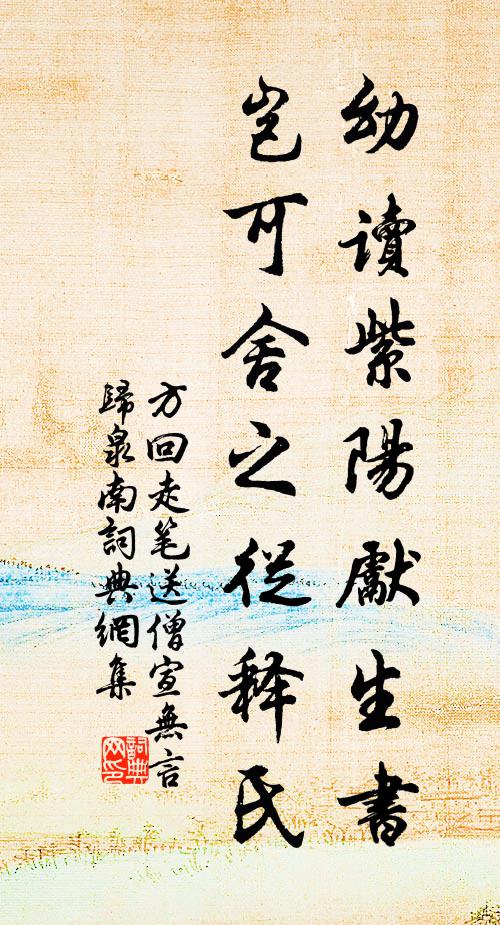 幼讀紫陽獻生書
豈可舍之從释氏
方回走笔送僧宣無言
歸泉南詞典網集
詞典网印